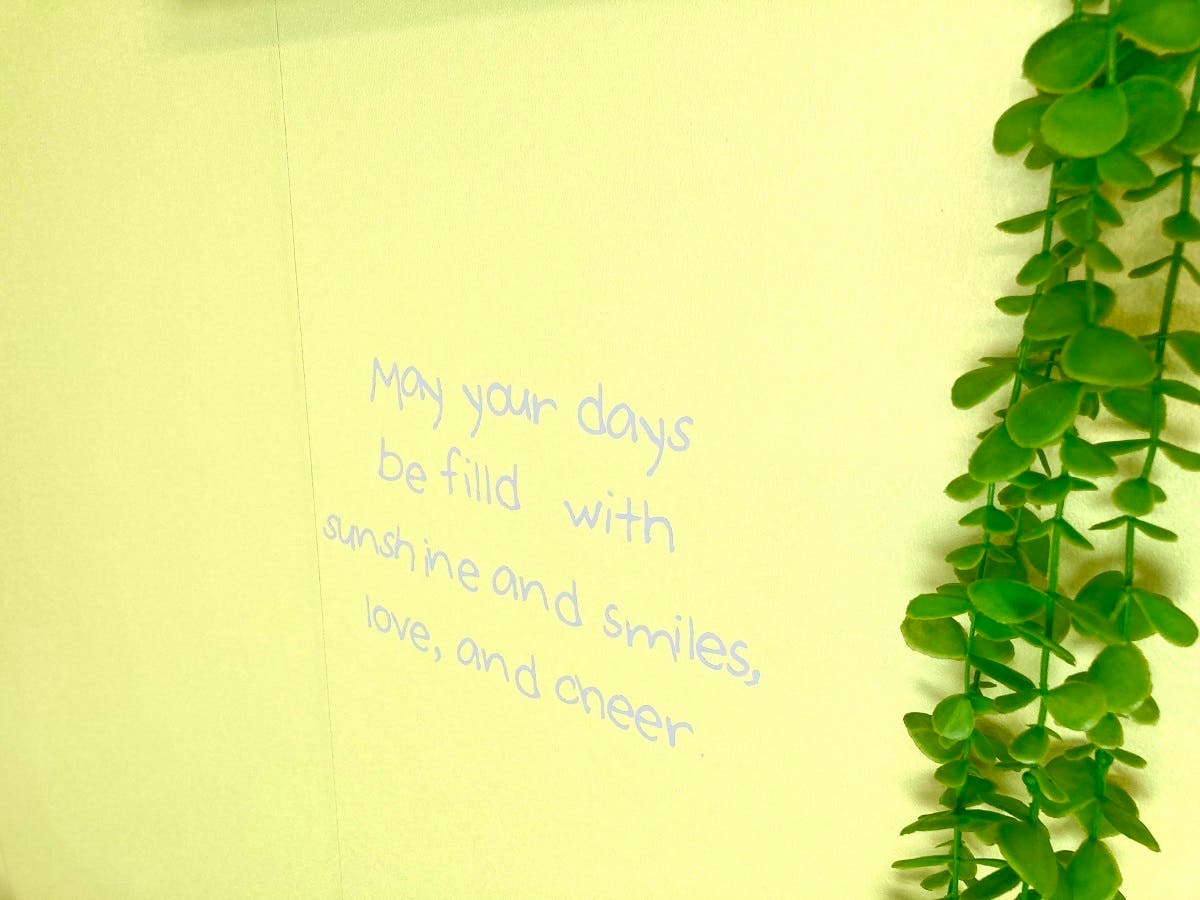 May your days
be filld with
sunshine and smiles,
love, and cheer.